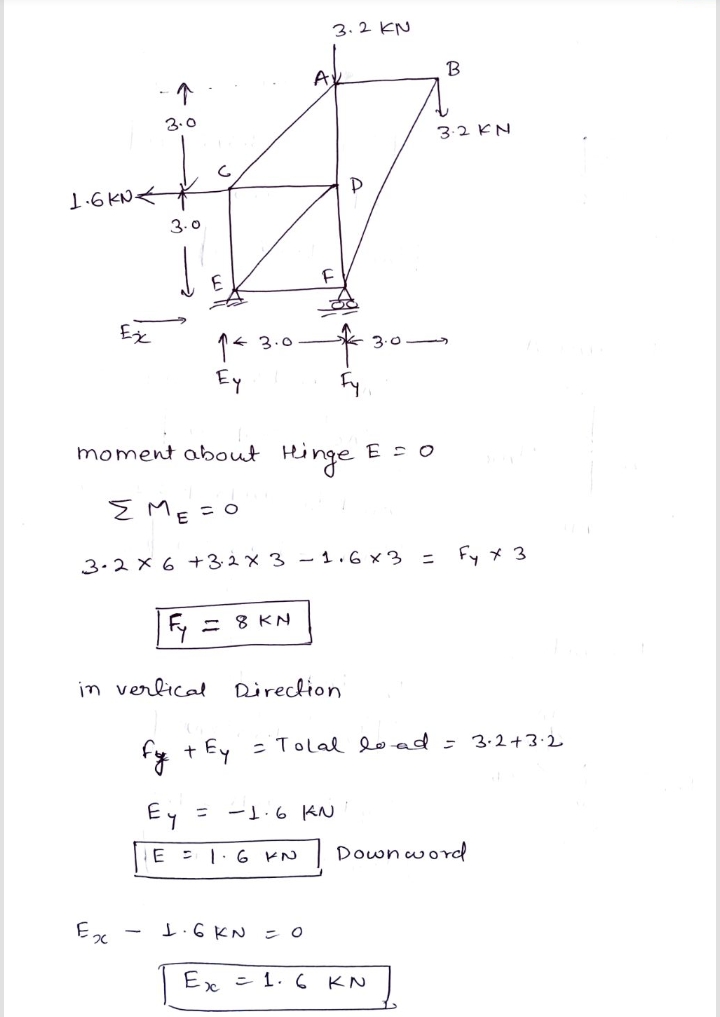 3.2 KN
A
B
3.0
3.2 KN
C
D
1.6 KN
3.0
E
F
Ex
3.0
3.0
Ey
Fy
moment about Hinge E = 0
Σ ME = 0
3.2 × 6 + 3.2 × 3 - 1.6 × 3 = Fy × 3
Fy = 8 KN
in vertical Direction
Fy + Ey = Total load = 3.2 + 3.2
Ey = -1.6 KN
E = 1.6 KN Downword
Ex - 1.6 KN = 0
Ex = 1.6 KN